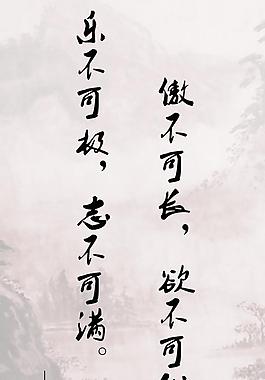 傲不可长，欲不可
乐不可极，志不可满。